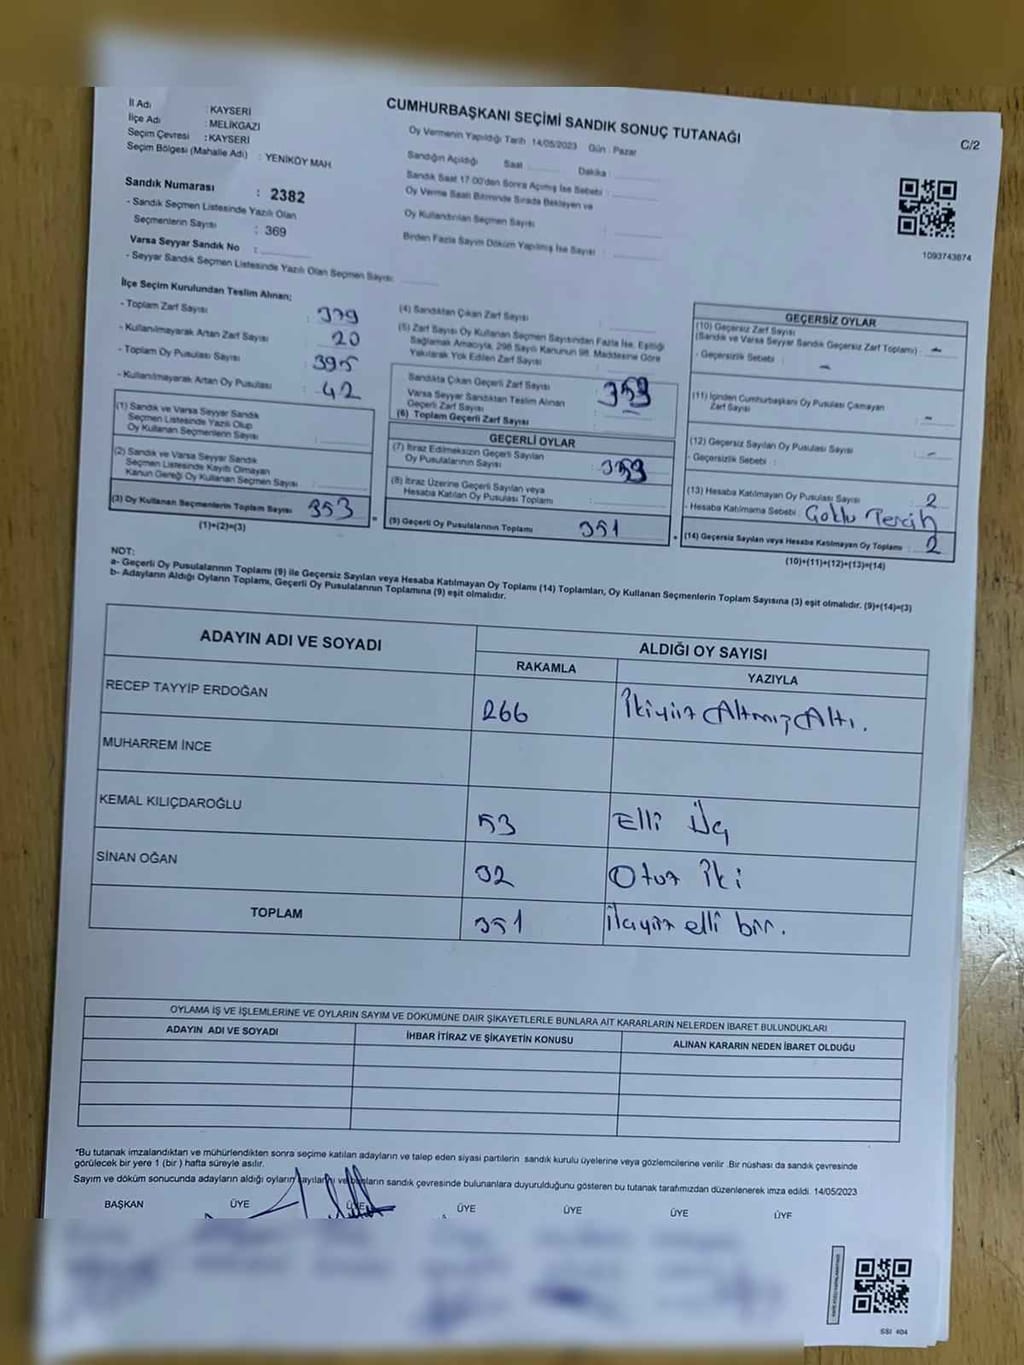 CUMHURBAŞKANI SEÇİMİ SANDIK SONUÇ TUTANAĞI
C/2
İl Adı : KAYSERİ
İlçe Adı : MELİKGAZİ
Seçim Çevresi : KAYSERİ
Seçim Bölgesi (Mahalle Adı) : YENİKÖY MAH.
Sandık Numarası : 2382
- Sandık Seçmen Listesinde Yazılı Olan
Seçmenlerin Sayısı : 369
Varsa Seyyar Sandık No :
- Seyyar Sandık Seçmen Listesinde Yazılı Olan Seçmen Sayısı:
Oy Vermenin Yapıldığı Tarih 14/05/2023 Gün : Pazar
Sandığın Açıldığı Saat Dakika :
Sandık Saat 17:00'den Sonra Açılmış İse Sebebi :
Oy Verme Saati Bitiminde Sırada Bekleyen ve
Oy Kullandırılan Seçmen Sayısı
Birden Fazla Sayım Döküm Yapılmış İse Sayısı :
1093743874
İlçe Seçim Kurulundan Teslim Alınan;
- Toplam Zarf Sayısı : 379
- Kullanılmayarak Artan Zarf Sayısı : 20
- Toplam Oy Pusulası Sayısı : 395
- Kullanılmayarak Artan Oy Pusulası : 42
(1) Sandık ve Varsa Seyyar Sandık
Seçmen Listesinde Yazılı Olup
Oy Kullanan Seçmenlerin Sayısı :
(2) Sandık ve Varsa Seyyar Sandık
Seçmen Listesinde Kayıtlı Olmayan
Kanun Gereği Oy Kullanan Seçmen Sayısı :
(3) Oy Kullanan Seçmenlerin Toplam Sayısı : 353
(1)+(2)=(3)
(4) Sandıktan Çıkan Zarf Sayısı :
(5) Zarf Sayısı Oy Kullanan Seçmen Sayısından Fazla İse, Eşitliği
Sağlamak Amacıyla, 298 Sayılı Kanunun 98. Maddesine Göre
Yakılarak Yok Edilen Zarf Sayısı :
Sandıkta Çıkan Geçerli Zarf Sayısı : 353
Varsa Seyyar Sandıktan Teslim Alınan
Geçerli Zarf Sayısı
(6) Toplam Geçerli Zarf Sayısı
GEÇERLİ OYLAR
(7) İtiraz Edilmeksizin Geçerli Sayılan
Oy Pusulalarının Sayısı : 353
(8) İtiraz Üzerine Geçerli Sayılan veya
Hesaba Katılan Oy Pusulası Toplamı :
(9) Geçerli Oy Pusulalarının Toplamı : 351
GEÇERSİZ OYLAR
(10) Geçersiz Zarf Sayısı
(Sandık ve Varsa Seyyar Sandık Geçersiz Zarf Toplamı) : -
- Geçersizlik Sebebi : -
(11) İçinden Cumhurbaşkanı Oy Pusulası Çıkmayan
Zarf Sayısı : -
(12) Geçersiz Sayılan Oy Pusulası Sayısı : -
- Geçersizlik Sebebi :
(13) Hesaba Katılmayan Oy Pusulası Sayısı : 2
- Hesaba Katılmama Sebebi : Çoklu Tercih
(14) Geçersiz Sayılan veya Hesaba Katılmayan Oy Toplamı : 2
(10)+(11)+(12)+(13)=(14)
NOT:
a- Geçerli Oy Pusulalarının Toplamı (9) ile Geçersiz Sayılan veya Hesaba Katılmayan Oy Toplamı (14) Toplamları, Oy Kullanan Seçmenlerin Toplam Sayısına (3) eşit olmalıdır. (9)+(14)=(3)
b- Adayların Aldığı Oyların Toplamı, Geçerli Oy Pusulalarının Toplamına (9) eşit olmalıdır.
ADAYIN ADI VE SOYADI ALDIĞI OY SAYISI
RAKAMLA YAZIYLA
RECEP TAYYİP ERDOĞAN 266 İkiyüz Altmış Altı.
MUHARREM İNCE
KEMAL KILIÇDAROĞLU 53 Elli Üç
SİNAN OĞAN 32 Otuz İki
TOPLAM 351 elli bir.
OYLAMA İŞ VE İŞLEMLERİNE VE OYLARIN SAYIM VE DÖKÜMÜNE DAİR ŞİKAYETLERLE BUNLARA AİT KARARLARIN NELERDEN İBARET BULUNDUKLARI
ADAYIN ADI VE SOYADI İHBAR İTİRAZ VE ŞİKAYETİN KONUSU ALINAN KARARIN NEDEN İBARET OLDUĞU
*Bu tutanak imzalandıktan ve mühürlendikten sonra seçime katılan adayların ve talep eden siyasi partilerin sandık kurulu üyelerine veya gözlemcilerine verilir .Bir nüshası da sandık çevresinde
görülecek bir yere 1 (bir ) hafta süreyle asılır.
Sayım ve döküm sonucunda adayların aldığı oyların sayılarını ve sandık çevresinde bulunanlara duyurulduğunu gösteren bu tutanak tarafımızdan düzenlenerek imza edildi. 14/05/2023
BAŞKAN ÜYE ÜYE ÜYE ÜYE ÜYE ÜYE
SSI 404